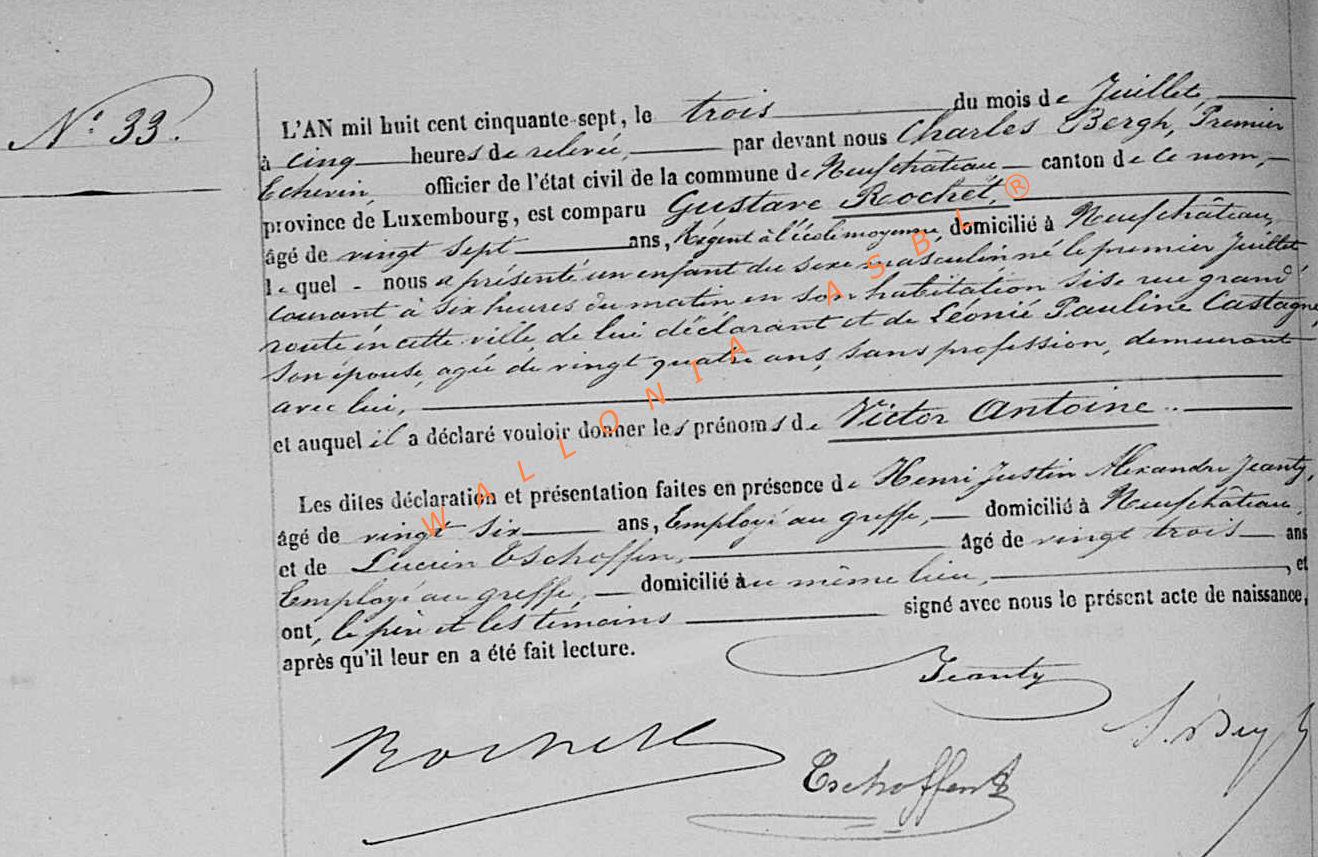 N.° 33.
L'AN mil huit cent cinquante-sept, le trois du mois de Juillet
à cinq heures de relevée, par devant nous Charles Bergh, Premier
Echevin, officier de l'état civil de la commune de Neufchâteau canton de ce nom,
province de Luxembourg, est comparu Gustave Rochet,
âgé de vingt sept ans, Régent à l'école moyenne, domicilié à Neufchâteau,
le quel nous a présenté un enfant du sexe masculin né le premier Juillet
courant à six heures du matin en son habitation sise rue grand
route en cette ville, de lui déclarant et de Léonie Pauline Castagne,
son épouse, agée de vingt quatre ans, sans profession, demeurant
avec lui,
et auquel il a déclaré vouloir donner les prénoms de Victor Antoine
Les dites déclaration et présentation faites en présence de Henri Justin Alexandre Jeanty,
âgé de vingt six ans, Employé au greffe, domicilié à Neufchâteau,
et de Lucien Eschoffen, âgé de vingt trois ans
Employé au greffe, domicilié au même lieu, , et
ont, le père et les témoins signé avec nous le présent acte de naissance,
après qu'il leur en a été fait lecture.
Jeanty
Rochet
Eschoffen
WALLONIA ASBL ®